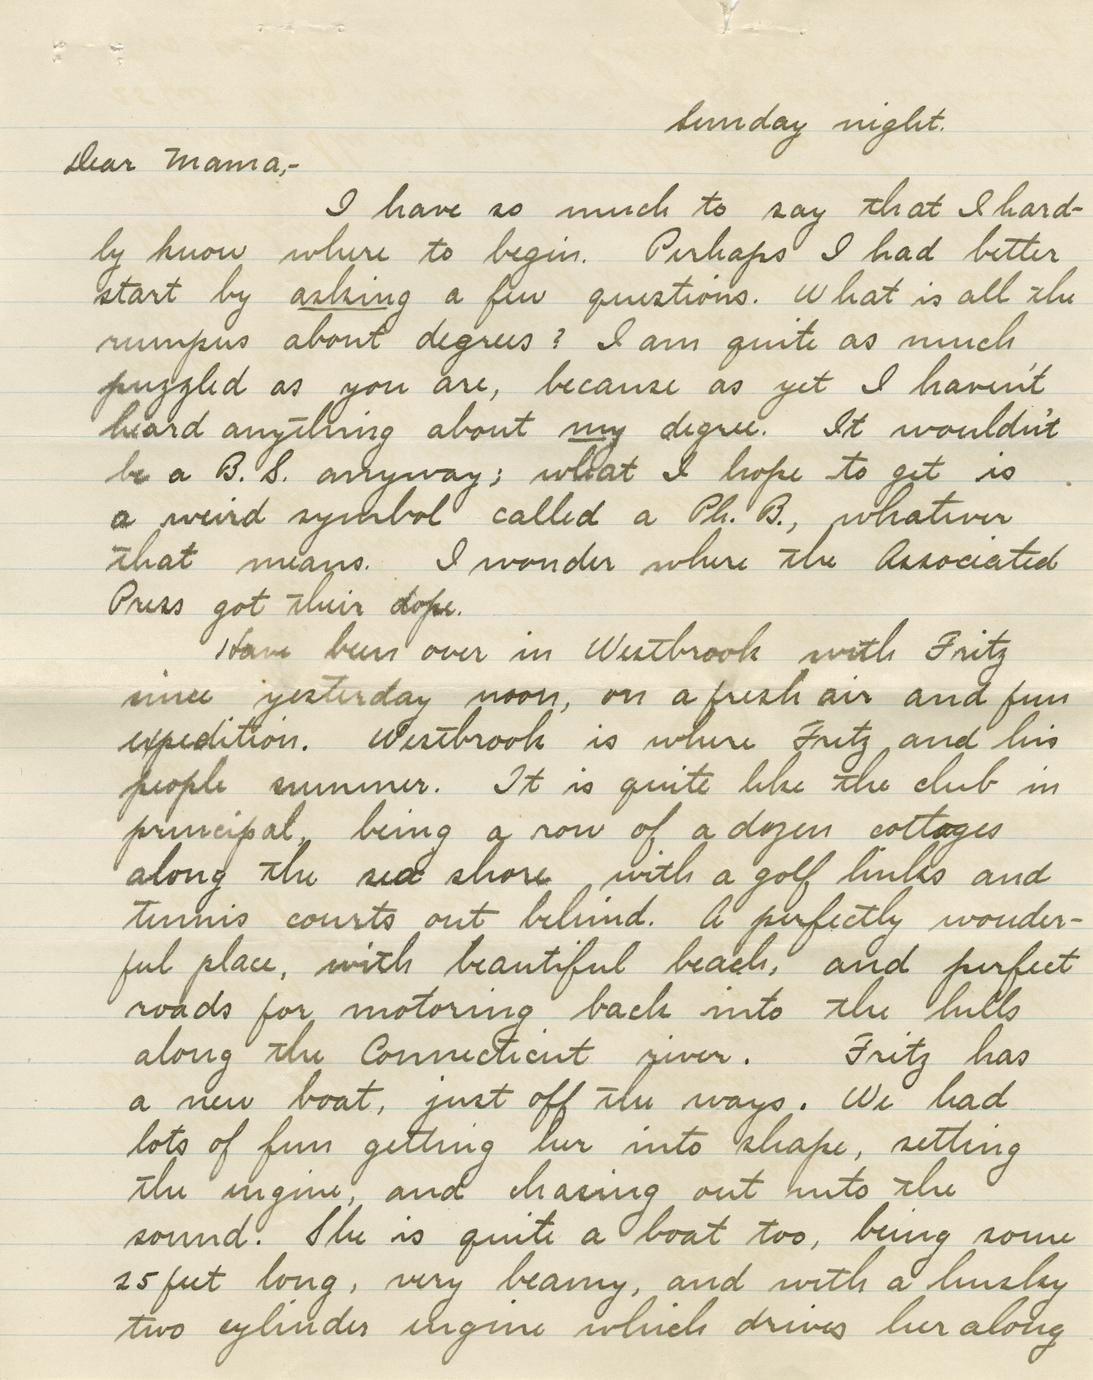 Sunday night.
Dear Mama,-
I have so much to say that I hard-
ly know where to begin. Perhaps I had better
start by asking a few questions. What is all the
rumpus about degrees? I am quite as much
puzzled as you are, because as yet I haven't
heard anything about my degree. It wouldn't
be a B.S. anyway; what I hope to get is
a weird symbol called a Ph. B., whatever
that means. I wonder where the Associated
Press got their dope.
Have been over in Westbrook with Fritz
since yesterday noon, on a fresh air and fun
expedition. Westbrook is where Fritz and his
people summer. It is quite like the club in
principal, being a row of a dozen cottages
along the sea shore with a golf links and
tennis courts out behind. A perfectly wonder-
ful place, with beautiful beach, and perfect
roads for motoring back into the hills
along the Connecticut river. Fritz has
a new boat, just off the ways. We had
lots of fun getting her into shape, setting
the engine, and chasing out into the
sound. She is quite a boat too, being some
25 feet long, very beamy, and with a husky
two cylinder engine which drives her along